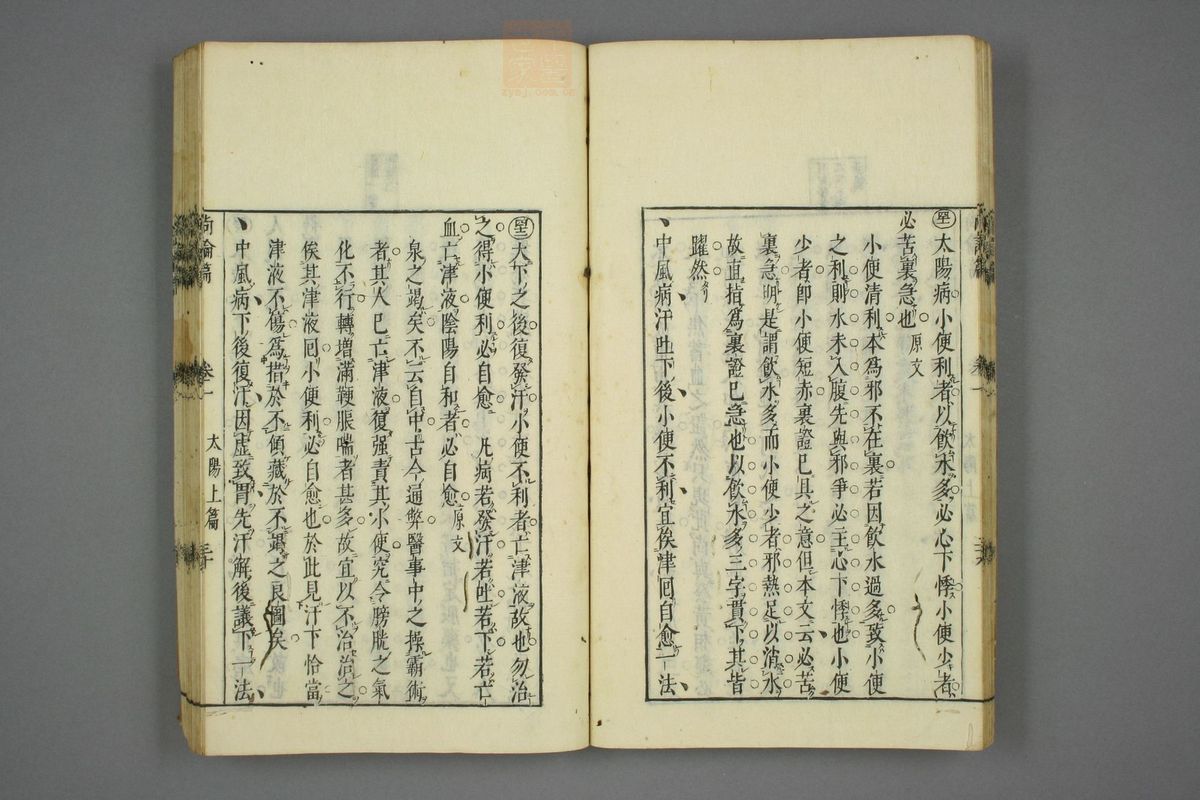 太陽病小便利者以飲水多必心下悸小便少者
必苦裏急也 原文
小便清利本為邪不在裏若因飲水過多致小便
之利則水未入腹先與邪爭必主心下悸也小便
少者卽小便短赤裏證已具之意但本文云必苦
裏急明是謂飲水多而小便少者邪熱足以消水
故直指為裏證已急也以飲水多三字貫下其旨
躍然
中風病汗吐下後小便不利宜俟津囘自愈一法
大下之後復發汗小便不利者亡津液故也勿治
之得小便利必自愈 凡病若發汗若吐若下若亡
血亡津液陰陽自和者必自愈 原文
泉之竭矣不云自中古今通弊醫事中之操霸術
者其人已亡津液復强責其小便究令膀胱之氣
化不行轉增滿鞕脹喘者甚多故宜以不治治之
俟其津液囘小便利必自愈也於此見汗下恰當
津液不傷為措於不傾藏於不竭之良圖矣
中風病下後復汗因虛致冐先汗解後議下一法
尚論篇 卷一 太陽上篇
zysj.com.cn